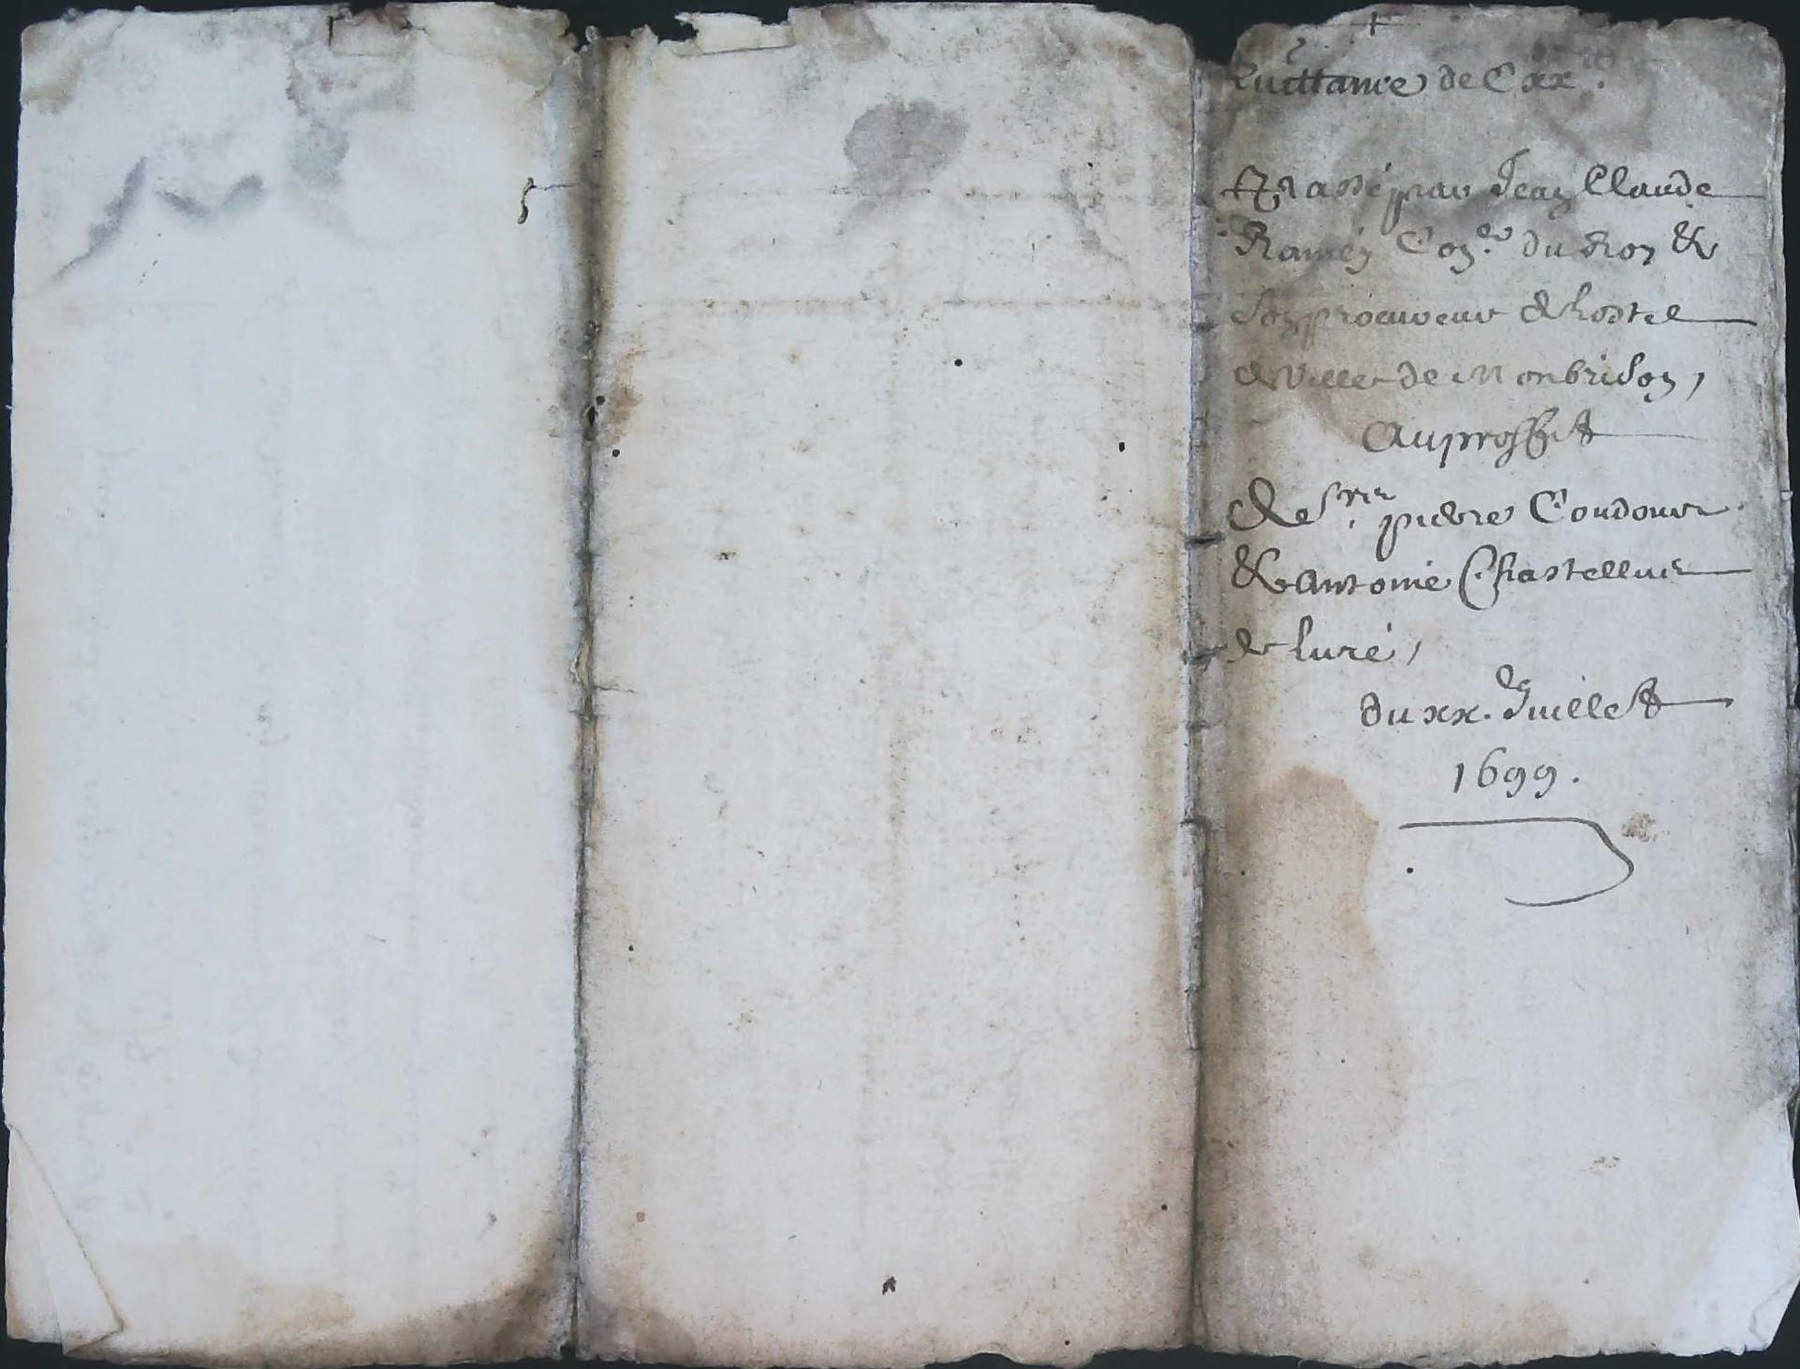 Quittance de Cxx#.
Passé par Jean Claude
Ramey Con.er du Roy &
son procureur & hostel
de Ville de Monbrison,
Au proffit
de S.rs pierre Coudour
& antoine Chastellus
de luré,
du xx.e Juillet
1699.